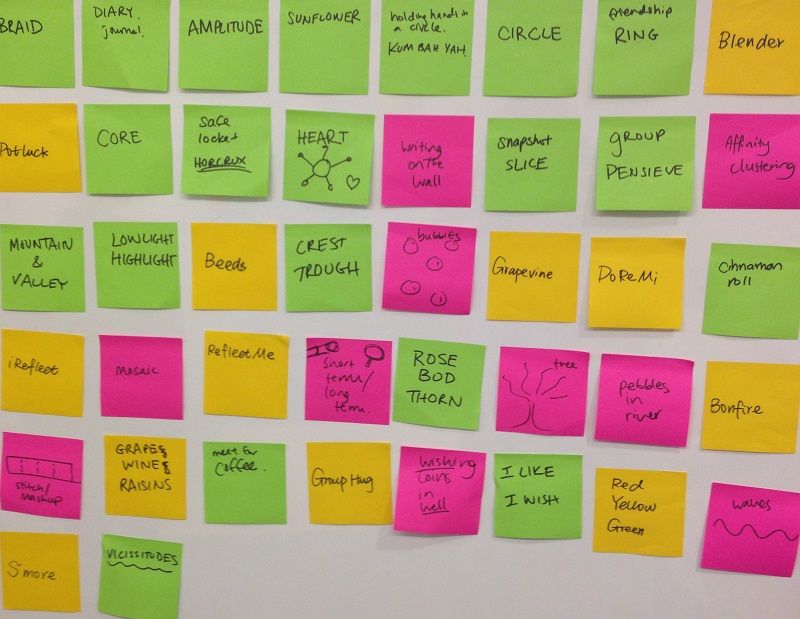 BRAID
DIARY
journal.
AMPLITUDE
SUNFLOWER
holding hands in
a circle.
KUM BAH YAH.
CIRCLE
friendship
RING
Blender
Potluck
CORE
locket
HORCRUX
HEART
writing
on the
wall
snapshot
SLICE
GROUP
PENSIEVE
Affinity
clustering
MOUNTAIN
&
VALLEY
LOWLIGHT
HIGHLIGHT
Beeds
CREST
TROUGH
bubbles
Grapevine
DoReMi
Cinnamon
roll
iReflect
mosaic
ReflectMe
short
term/
long
term.
ROSE
BUD
THORN
tree
pebbles
in
river
Bonfire
stitch/
mashup
GRAPES
WINE &
RAISINS
meet for
coffee.
Group Hug
wishing
coins
in
well
I LIKE
I WISH
Red
Yellow
Green
waves
S'more
VICISSITUDES